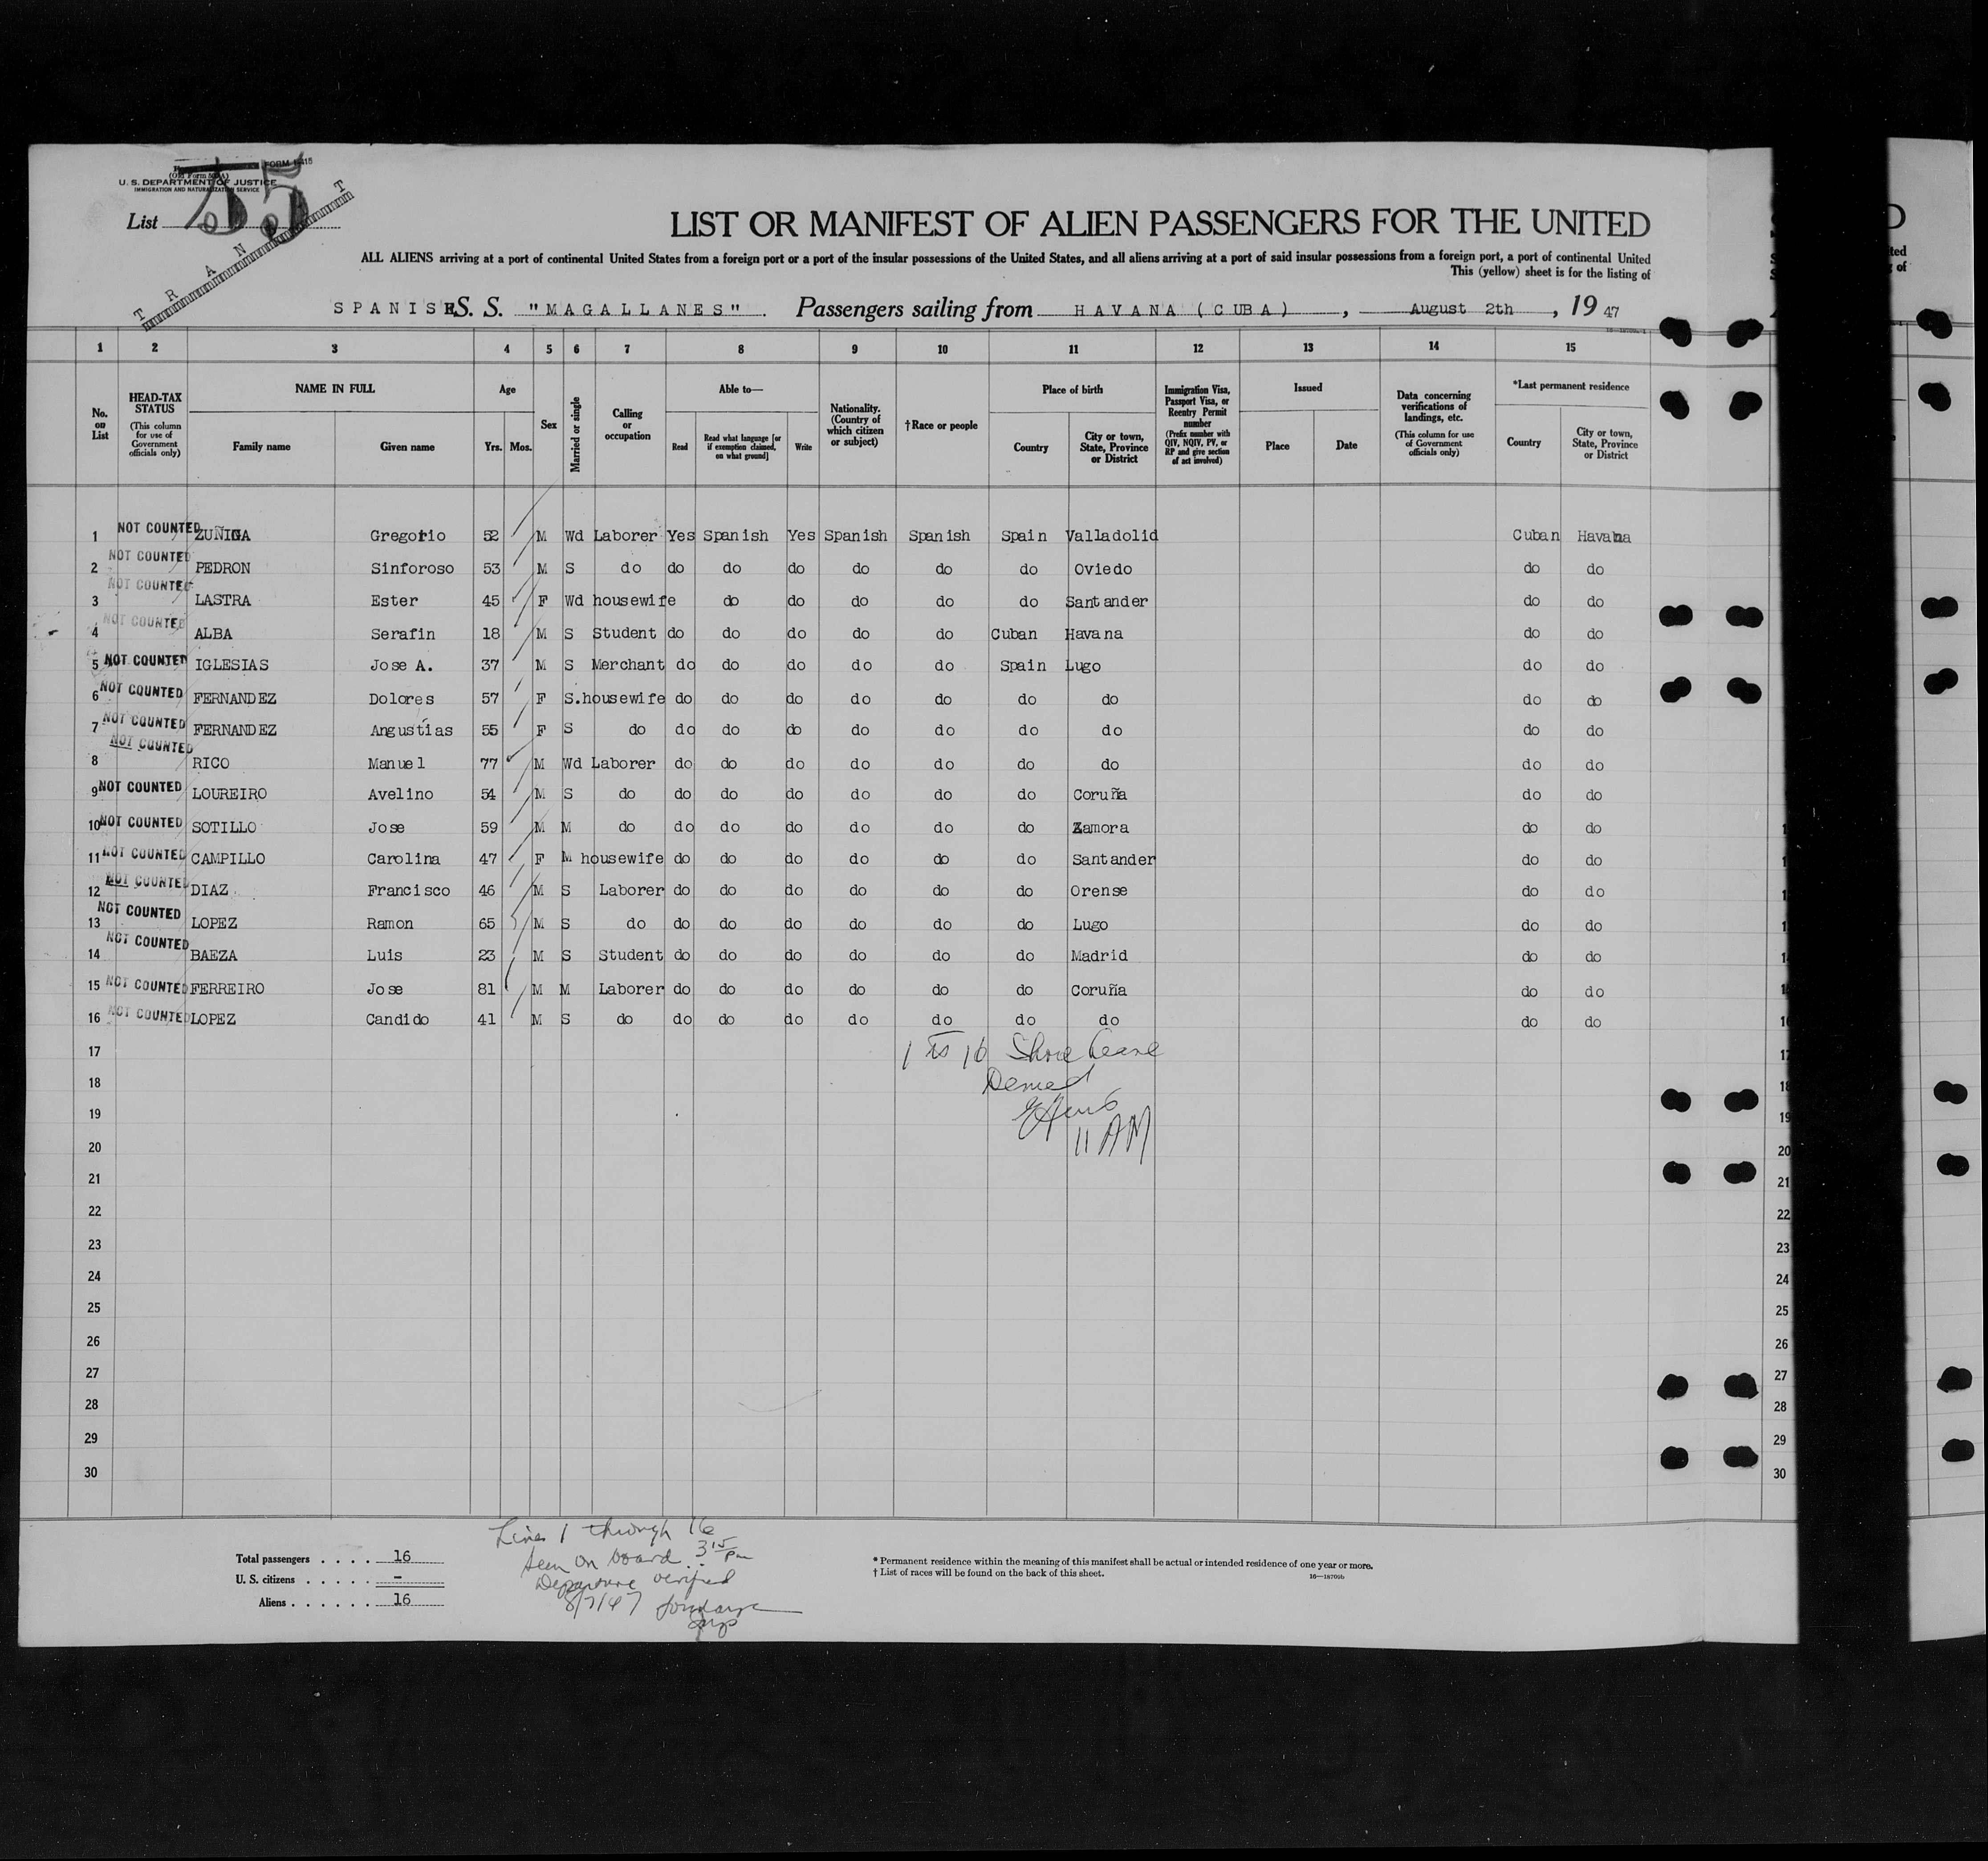 FORM I-415
(Old Form 500A)
U. S. DEPARTMENT OF JUSTICE
IMMIGRATION AND NATURALIZATION SERVICE
List 55
T R A N S I T
LIST OR MANIFEST OF ALIEN PASSENGERS FOR THE UNITED
ALL ALIENS arriving at a port of continental United States from a foreign port or a port of the insular possessions of the United States, and all aliens arriving at a port of said insular possessions from a foreign port, a port of continental United
This (yellow) sheet is for the listing of
SPANISH S. S. "MAGALLANES". Passengers sailing from HAVANA (CUBA), August 2th, 19 47
1 2 3 4 5 6 7 8 9 10 11 12 13 14 15
No. on List
HEAD-TAX STATUS (This column for use of Government officials only)
NAME IN FULL Family name Given name
Age Yrs. Mos.
Sex
Married or single
Calling or occupation
Able to— Read Read what language [or if exemption claimed, on what ground] Write
Nationality. (Country of which citizen or subject)
†Race or people
Place of birth Country City or town, State, Province or District
Immigration Visa, Passport Visa, or Reentry Permit number (Prefix number with QIV, NQIV, PV, or RP and give section of act involved)
Issued Place Date
Data concerning verifications of landings, etc. (This column for use of Government officials only)
*Last permanent residence Country City or town, State, Province or District
1 NOT COUNTED ZUÑIGA Gregorio 52 M Wd Laborer Yes Spanish Yes Spanish Spanish Spain Valladolid Cuban Havana
2 NOT COUNTED PEDRON Sinforoso 53 M S do do do do do do do Oviedo do do
3 NOT COUNTED LASTRA Ester 45 F Wd housewife do do do do do Santander do do
4 NOT COUNTED ALBA Serafin 18 M S Student do do do do do Cuban Havana do do
5 NOT COUNTED IGLESIAS Jose A. 37 M S Merchant do do do do do Spain Lugo do do
6 NOT COUNTED FERNANDEZ Dolores 57 F S.housewife do do do do do do do do do
7 NOT COUNTED FERNANDEZ Angustías 55 F S do do do do do do do do do do
8 NOT COUNTED RICO Manuel 77 M Wd Laborer do do do do do do do do do
9 NOT COUNTED LOUREIRO Avelino 54 M S do do do do do do do Coruña do do
10 NOT COUNTED SOTILLO Jose 59 M M do do do do do do do Zamora do do
11 NOT COUNTED CAMPILLO Carolina 47 F M housewife do do do do do do Santander do do
12 NOT COUNTED DIAZ Francisco 46 M S Laborer do do do do do do Orense do do
13 NOT COUNTED LOPEZ Ramon 65 M S do do do do do do do Lugo do do
14 NOT COUNTED BAEZA Luis 23 M S Student do do do do do do Madrid do do
15 NOT COUNTED FERREIRO Jose 81 M M Laborer do do do do do do Coruña do do
16 NOT COUNTED LOPEZ Candido 41 M S do do do do do do do do do do
17 1 to 16 Shore leave 17
18 Denied 18
19 19
11 AM
20 20
21 21
22 22
23 23
24 24
25 25
26 26
27 27
28 28
29 29
30 30
Lines 1 through 16
seen on board 3 15 pm
Departure verified
8/7/47
Total passengers . . . . 16
U. S. citizens . . . . . –
Aliens . . . . . . 16
* Permanent residence within the meaning of this manifest shall be actual or intended residence of one year or more.
† List of races will be found on the back of this sheet.
16—18700b